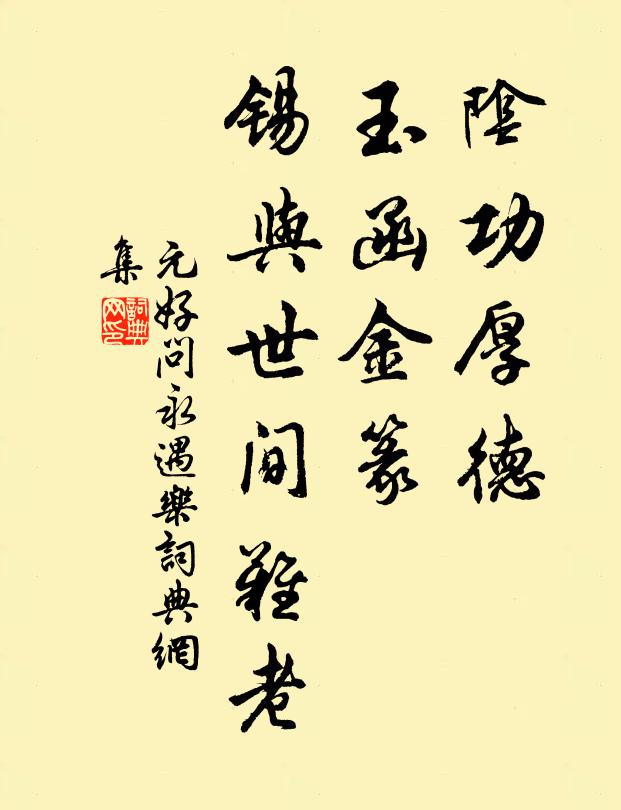 陰功厚德
玉函金篆
錫與世间難老
元好问永遇樂詞典網
集
詞典
网印